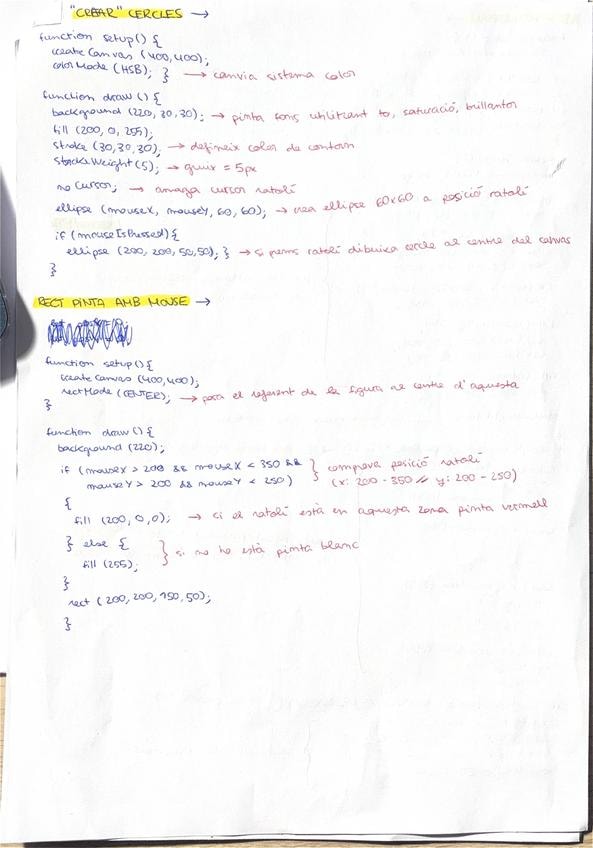 "CREAR" CERCLES →
function setup() {
createCanvas (400,400);
colorMode (HSB); } → canvia sistema color
function draw () {
background (220, 30, 30); → pinta fons utilitzant to, saturació, brillantor
fill (200, 0, 255);
stroke (30, 30, 30); → defineix color de contorn
strockeWeight (5); → gruix = 5px
no Cursor; → amaga cursor ratolí
ellipse (mouseX, mouseY, 60, 60); → crea ellipse 60x60 a posició ratolí
if (mouseIsPressed) {
ellipse (200, 200, 50, 50); } → si prems ratolí dibuixa cercle al centre del canvas
}
RECT PINTA AMB MOUSE →
function setup() {
createCanvas (400,400);
rectMode (CENTER); → posa el referent de la figura al centre d'aquesta
}
function draw () {
background (220);
if (mouseX > 200 && mouseX < 350 && } comprova posició ratolí
mouseY > 200 && mouseY < 250) (x: 200 - 350 // y: 200 - 250)
{
fill (200, 0, 0); → si el ratolí està en aquesta zona pinta vermell
} else { } si no ho està pinta blanc
fill (255);
}
rect (200, 200, 150, 50);
}